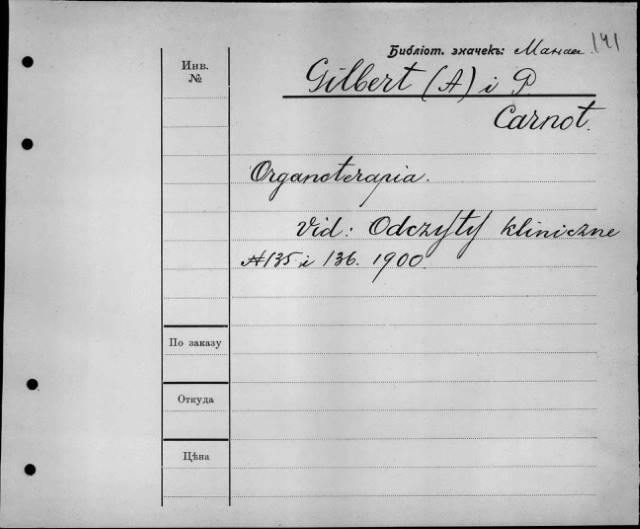 Библіот. значекъ: 141
Инв.
№
Gilbert (A) i P
Carnot.
Organoterapia.
Vid: Odczyty kliniczne
№135 i 136. 1900.
По заказу
Откуда
Цѣна